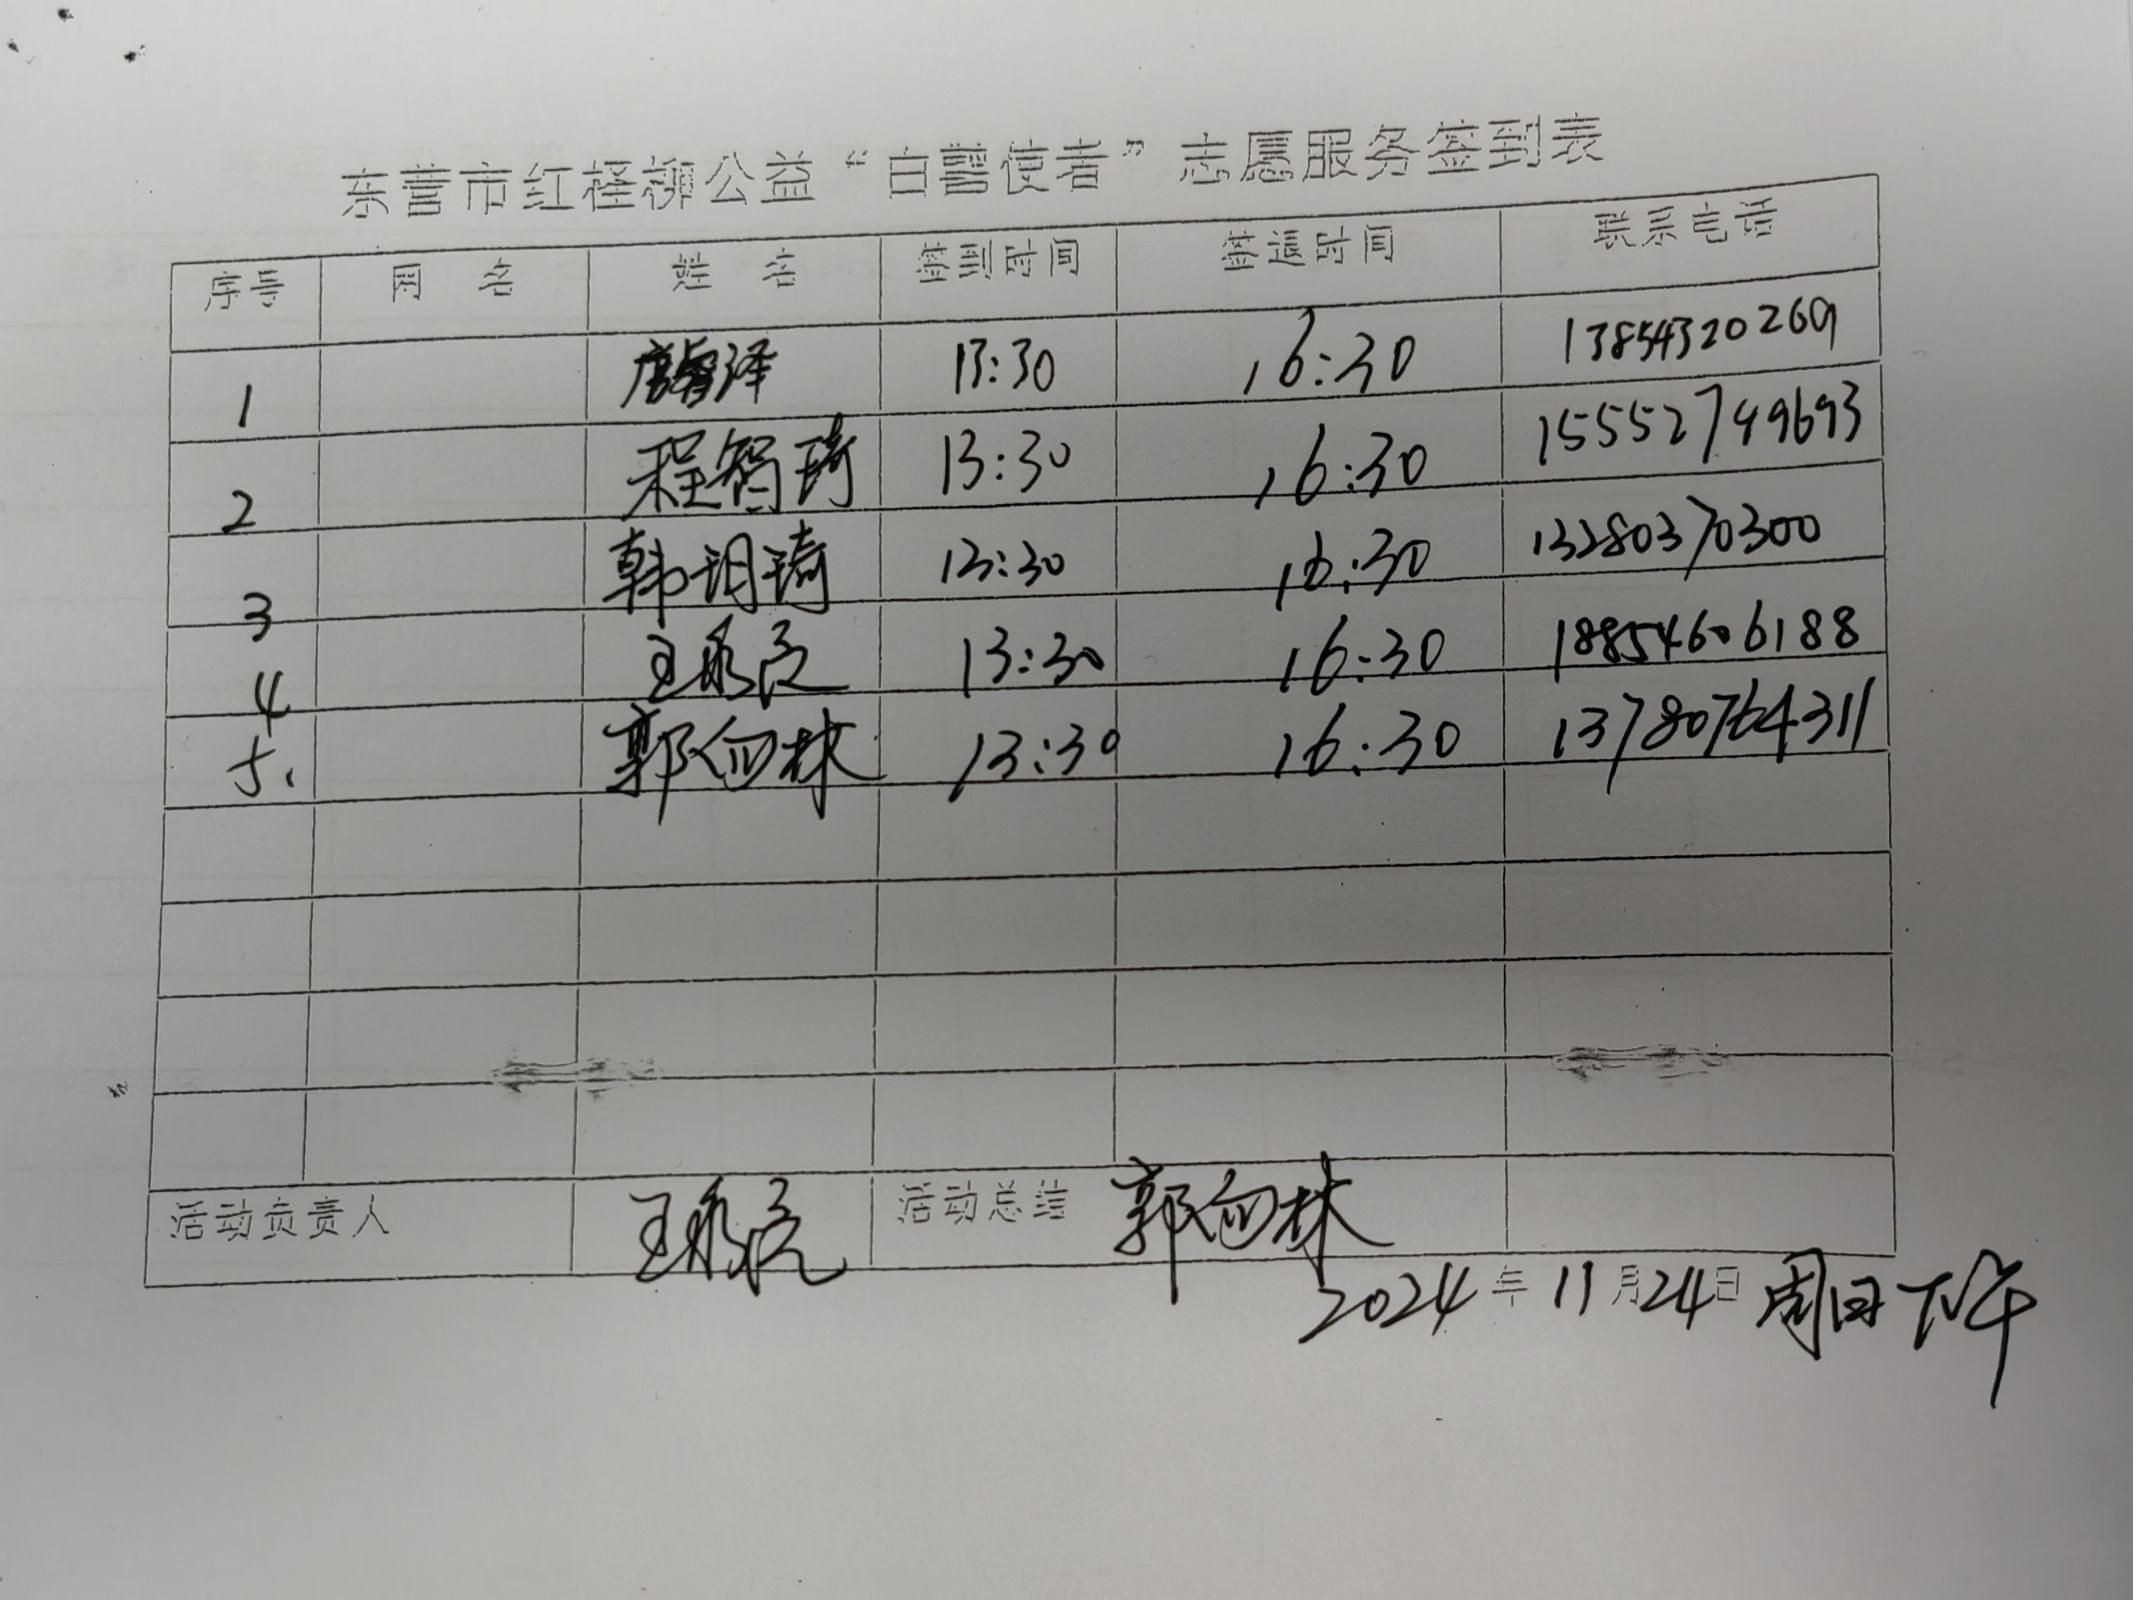 东营市红柽柳公益“白鹭使者”志愿服务签到表
序号 网 名 姓 名 签到时间 签退时间 联系电话
1 泽 13:30 16:30 13854320269
2 程智琦 13:30 16:30 15552749693
3 韩玥琦 13:30 16:30 13280370300
4 王永亮 13:30 16:30 18854606188
5. 郭向林 13:30 16:30 13780764311
活动负责人 王永亮 活动总结 郭向林
2024年11月24日 周日下午